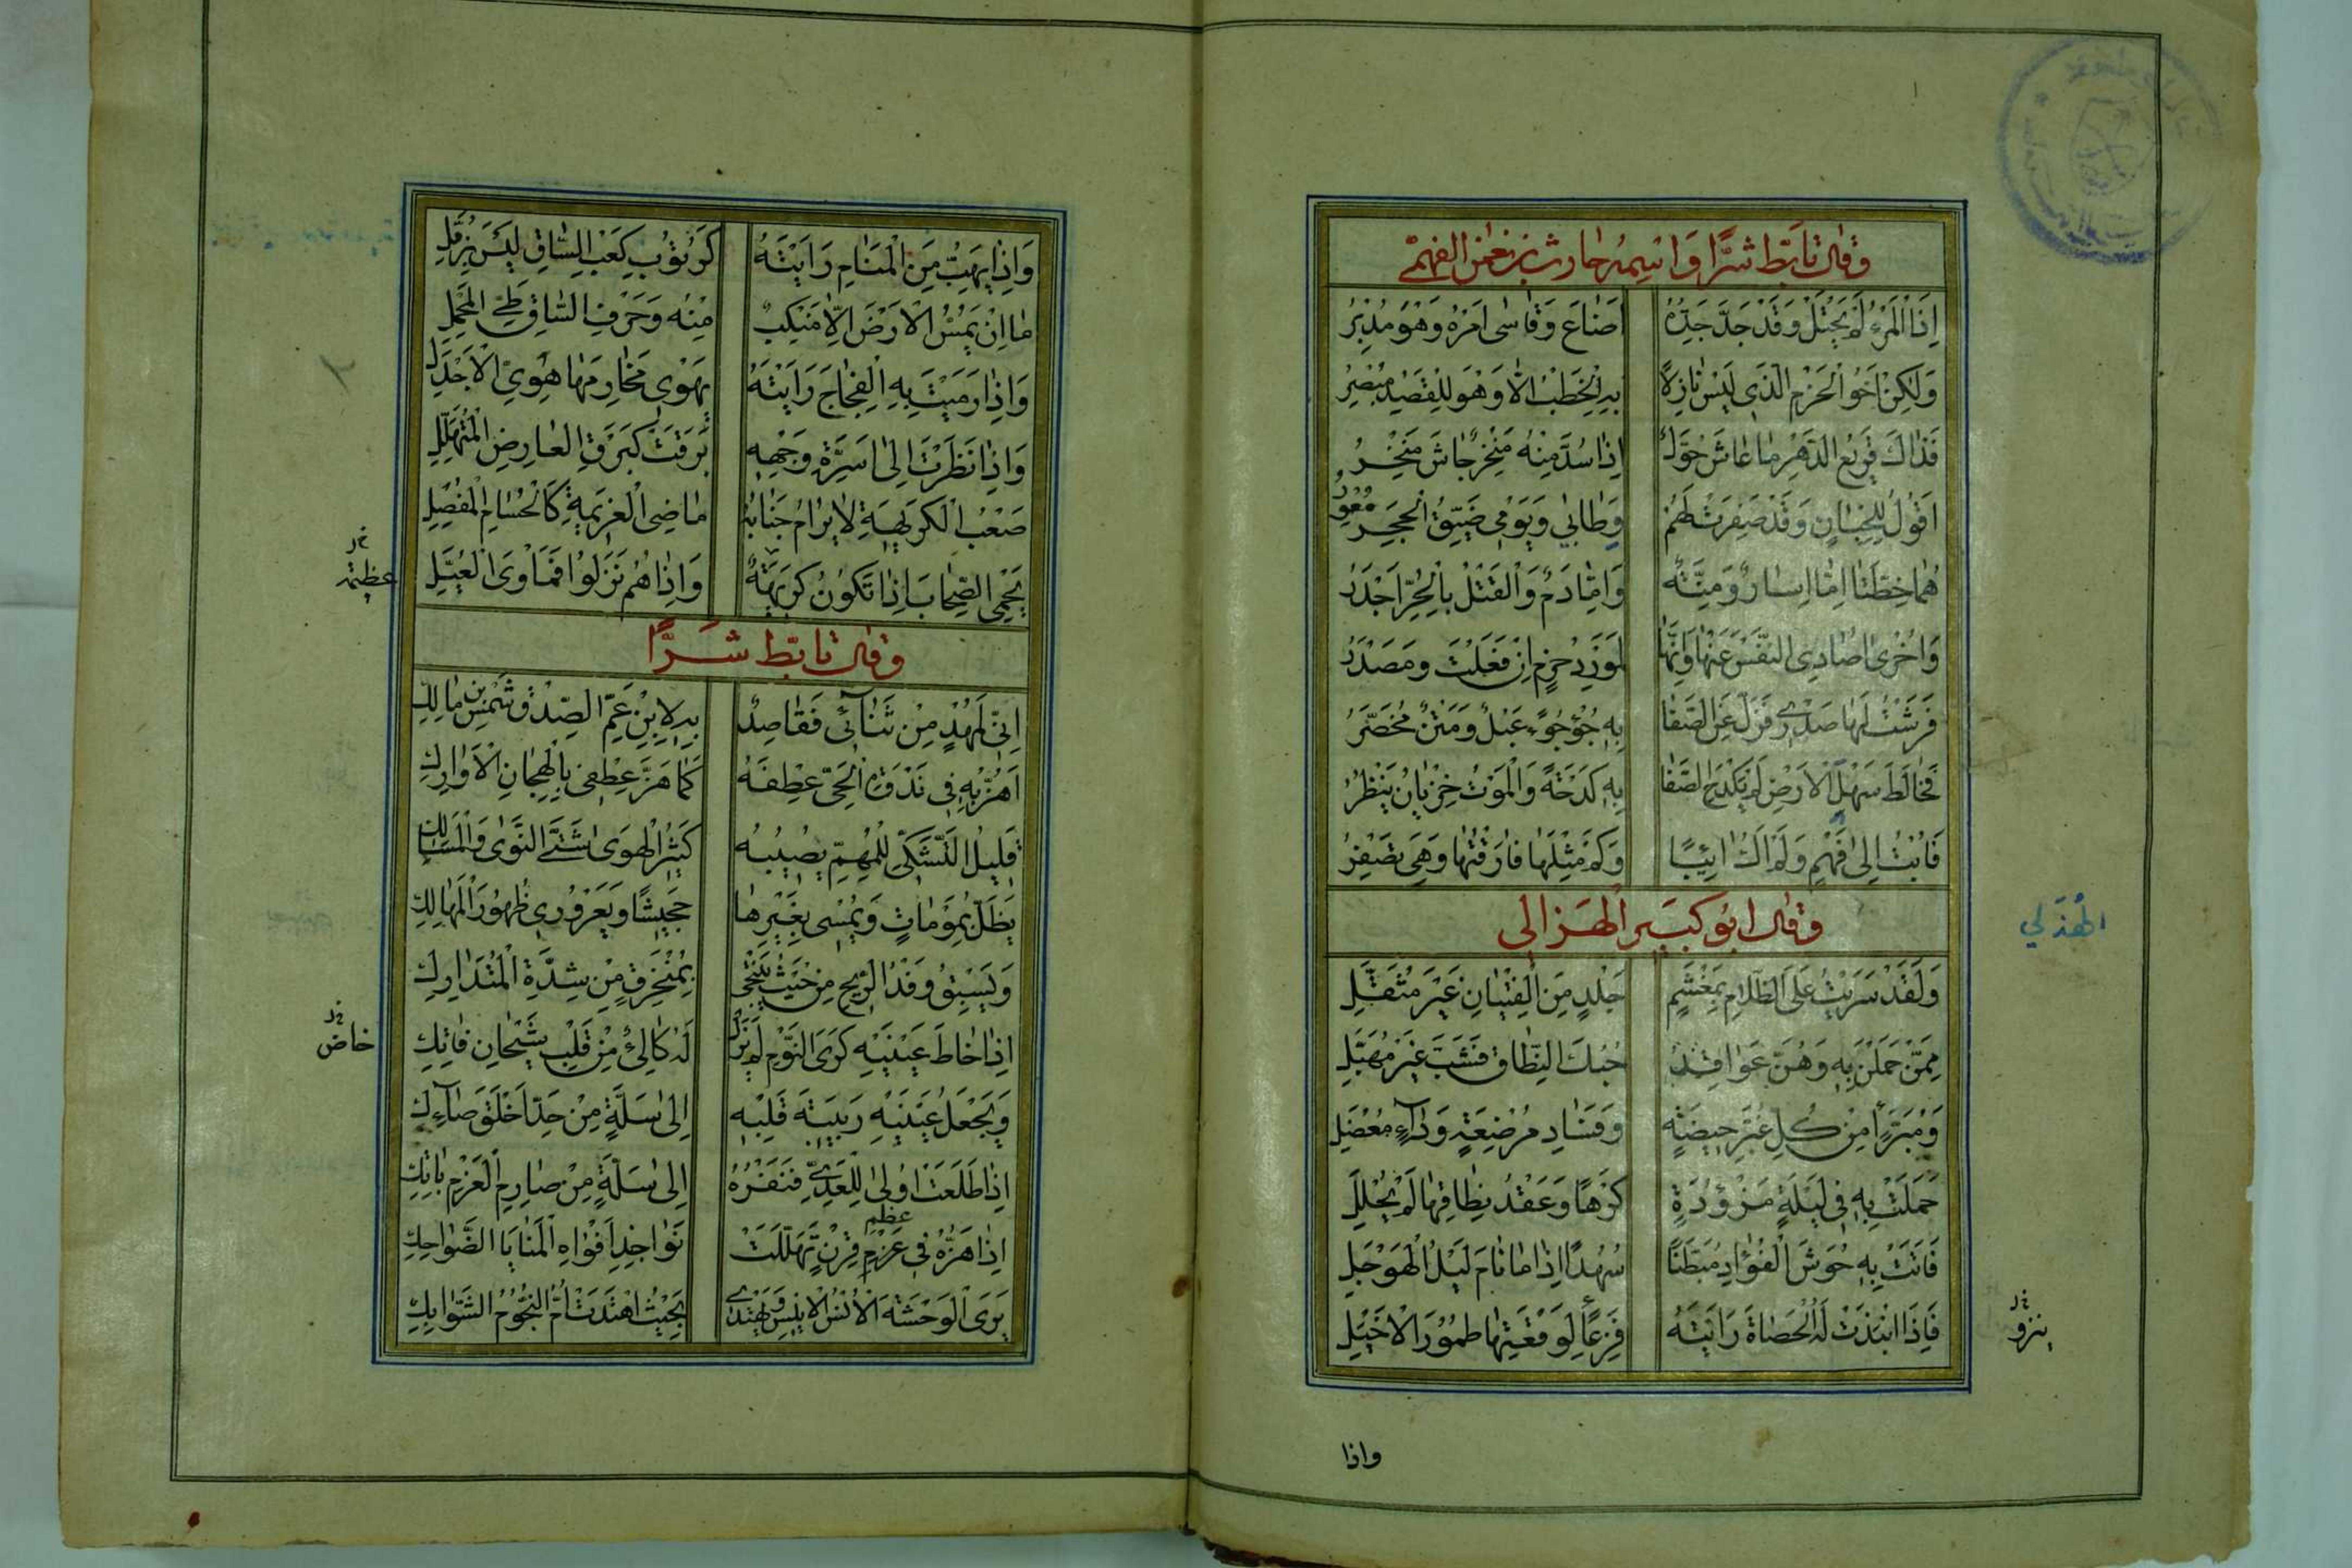 وقال تابّط شرًّا واسمه حارث بن نعمن الفهمی
اِذَا الْمَرْءُ لَمْ يَحْتَلْ وَقَدْ جَدَّ جَدُّهُ اَضَاعَ وَقَاسٰى اَمْرَهُ وَهْوَ مُدْبِرُ
وَلٰكِنْ اَخُو الْحَزْمِ الَّذِى لَيْسَ نَازِلًا بِهِ الْخَطْبُ اِلَّا وَهْوَ لِلْقَصْدِ مُبْصِرُ
فَذَاكَ قَرِيعُ الدَّهْرِ مَا عَاشَ حُوَّلٌ اِذَا سُدَّ مِنْهُ مَنْخِرٌ جَاشَ مَنْخِرُ
اَقُولُ لِلِحْيَانٍ وَقَدْ صَفِرَتْ لَهُمْ وَطَابِي وَيَوْمِي ضَيِّقُ الْحَجَرِ مُعْوِرُ
هُمَا خُطَّتَا اِمَّا اِسَارٌ وَمِنَّةٌ وَاِمَّا دَمٌ وَالْقَتْلُ بِالْحُرِّ اَجْدَرُ
وَاُخْرٰى اُصَادِى النَّفْسَ عَنْهَا وَاِنَّهَا لَمَوْرِدُ حَزْمٍ اِنْ فَعَلْتُ وَمَصْدَرُ
فَرَشْتُ لَهَا صَدْرِى فَزَلَّ عَنِ الصَّفَا بِهِ جُؤْجُؤٌ عَبْلٌ وَمَتْنٌ مُخَصَّرُ
فَخَالَطَ سَهْلَ الْاَرْضِ لَمْ يَكْدَحِ الصَّفَا بِهِ كَدْحَةً وَالْمَوْتُ خَزْيَانُ يَنْظُرُ
فَاُبْتُ اِلٰى فَهْمٍ وَلَمْ اَكُ آئِبًا وَكَمْ مِثْلِهَا فَارَقْتُهَا وَهِىَ تَصْفِرُ
وقال ابو كبير الهزالی
الْهُذَلي
وَلَقَدْ سَرَيْتُ عَلَى الظَّلَامِ بِمِغْشَمٍ جَلْدٍ مِنَ الْفِتْيَانِ غَيْرِ مُثَقَّلِ
مِمَّنْ حَمَلْنَ بِهِ وَهُنَّ عَوَاقِدُ حُبُكَ النِّطَاقِ فَشَبَّ غَيْرَ مُهَبَّلِ
وَمُبَرَّءًا مِنْ كُلِّ غُبَّرِ حِيضَةٍ وَفَسَادِ مُرْضِعَةٍ وَدَآءٍ مُعْضِلِ
حَمَلَتْ بِهِ فِى لَيْلَةٍ مَزْؤُدَةٍ كَرْهًا وَعَقْدُ نِطَاقِهَا لَمْ يُحْلَلِ
فَاَتَتْ بِهِ حُوشَ الْفُؤَادِ مُبَطَّنًا سُهُدًا اِذَا مَا نَامَ لَيْلُ الْهَوْجَلِ
فَاِذَا انْبَذَتْ لَهُ الْحَصَاةَ رَاَيْتَهُ فَزِعًا لِوَقْعَتِهَا طُمُورَ الْاَخْيَلِ
ينزو
واذا
وَاِذَا يَهُبُّ مِنَ الْمَنَامِ رَاَيْتَهُ كَرُتُوبِ كَعْبِ السَّاقِ لَيْسَ بِزُمَّلِ
مَا اِنْ يَمُسُّ الْاَرْضَ اِلَّا مَنْكِبٌ مِنْهُ وَحَرْفُ السَّاقِ طَىَّ الْمِحْمَلِ
وَاِذَا رَمَيْتَ بِهِ الْفِجَاجَ رَاَيْتَهُ يَهْوِى مَخَارِمَهَا هُوِىَّ الْاَجْدَلِ
وَاِذَا نَظَرْتَ اِلٰى اَسِرَّةِ وَجْهِهِ بَرَقَتْ كَبَرْقِ الْعَارِضِ الْمُتَهَلِّلِ
صَعْبُ الْكَرِيهَةِ لَا يُرَامُ جَنَابُهُ مَاضِى الْعَزِيمَةِ كَالْحُسَامِ الْمِفْصَلِ
يَحْمِى الصِّحَابَ اِذَا تَكُونُ كَرِيهَةٌ وَاِذَا هُمْ نَزَلُوا فَمَاْوَى الْعُيَّلِ
عظيمة
وقال تابّط شرًّا
اِنِّى لَمُهْدٍ مِنْ ثَنَآئِى فَقَاصِدٌ بِهِ لِابْنِ عَمِّ الصِّدْقِ شَمْسِ بْنِ مَالِكِ
اَهُزُّ بِهِ فِى نَدْوَةِ الْحَىِّ عِطْفَهُ كَمَا هَزَّ عِطْفِى بِالْهِجَانِ الْاَوَارِكِ
قَلِيلُ التَّشَكِّى لِلْمُهِمِّ يُصِيبُهُ كَثِيرُ الْهَوٰى شَتَّى النَّوٰى وَالْمَسَالِكِ
يَظَلُّ بِمَوْمَاةٍ وَيُمْسِى بِغَيْرِهَا جَحِيشًا وَيَعْرَوْرِى ظُهُورَ الْمَهَالِكِ
وَيَسْبِقُ وَفْدَ الرِّيحِ مِنْ حَيْثُ يَنْتَحِى بِمُنْخَرِقٍ مِنْ شِدَّةِ الْمُتَدَاوِلِ
اِذَا خَاطَ عَيْنَيْهِ كَرَى النَّوْمِ لَمْ يَزَلْ لَهُ كَالِئٌ مِنْ قَلْبِ شَيْحَانَ فَاتِكِ
خاض
وَيَجْعَلُ عَيْنَيْهِ رَبِيئَةَ قَلْبِهِ اِلٰى سَلَّةٍ مِنْ حَدِّ اَخْلَقَ صَآءِكِ
اِذَا طَلَعَتْ اُولٰى الْعَدِىِّ فَنَفْرُهُ اِلٰى سَلَّةٍ مِنْ صَارِمِ الْعَزْمِ بَاتِكِ
عظم
اِذَا هَزَّهُ فِى عَزْمِ قِرْنٍ تَهَلَّلَتْ نَوَاجِذُ اَفْوَاهِ الْمَنَايَا الضَّوَاحِكِ
يَرَى الْوَحْشَةَ الْاُنْسَ الْاَنِيسَ وَيَهْتَدِى بِحَيْثُ اهْتَدَتْ اُمُّ النُّجُومِ الشَّوَابِكِ